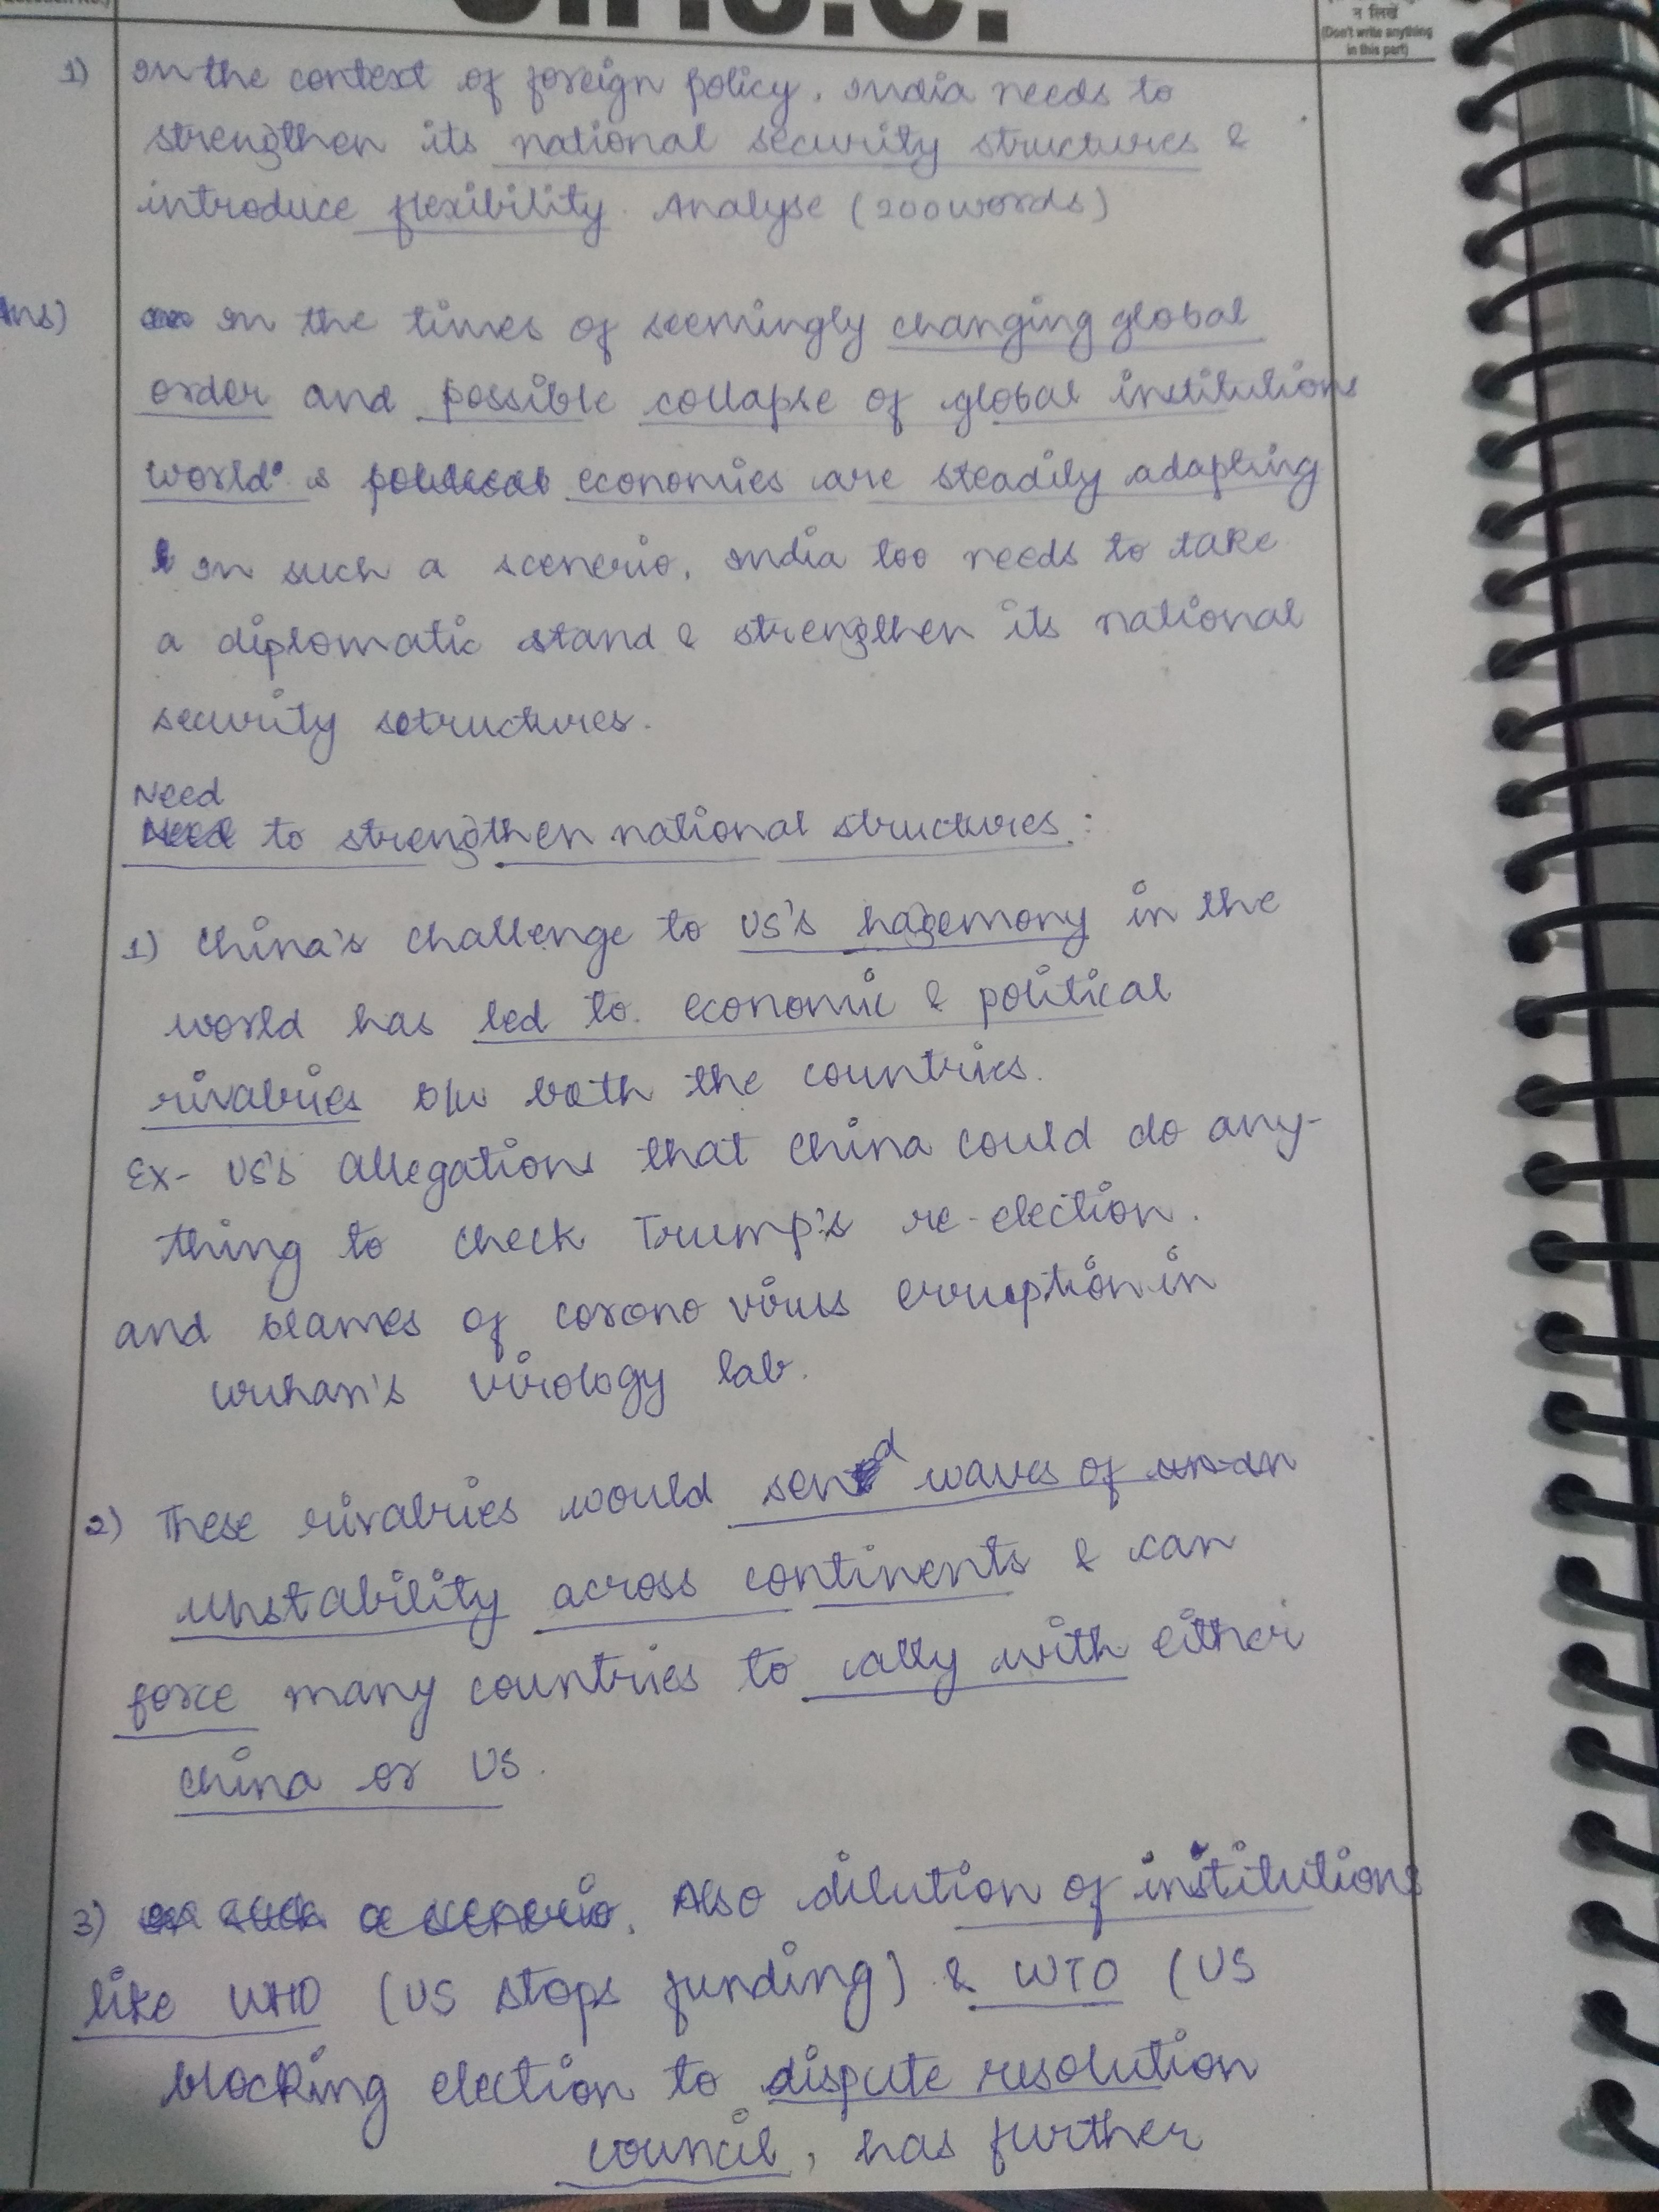 न लिखें
(Don't write anything
in this part)
1) In the context of foreign policy, India needs to
strengthen its national security structures &
introduce flexibility. Analyse (200 words)
Ans) In the times of seemingly changing global
order and possible collapse of global institutions
world's economies are steadily adapting
In such a scenerio, India too needs to take
a diplomatic stand & strengthen its national
security structures.
Need
to strengthen national structures:
1) China's challenge to US's hagemony in the
world has led to economic & political
rivalries b/w both the countries.
Ex- US's allegations that China could do any-
thing to check Trump's re-election.
and blames of corono virus erruption in
wuhan's virology lab.
2) These rivalries would send waves of
unstability across continents & can
force many countries to ally with either
china or US.
3) Also dilution of institutions
like WHO (US stops funding) & WTO (US
blocking election to dispute resolution
council, has further